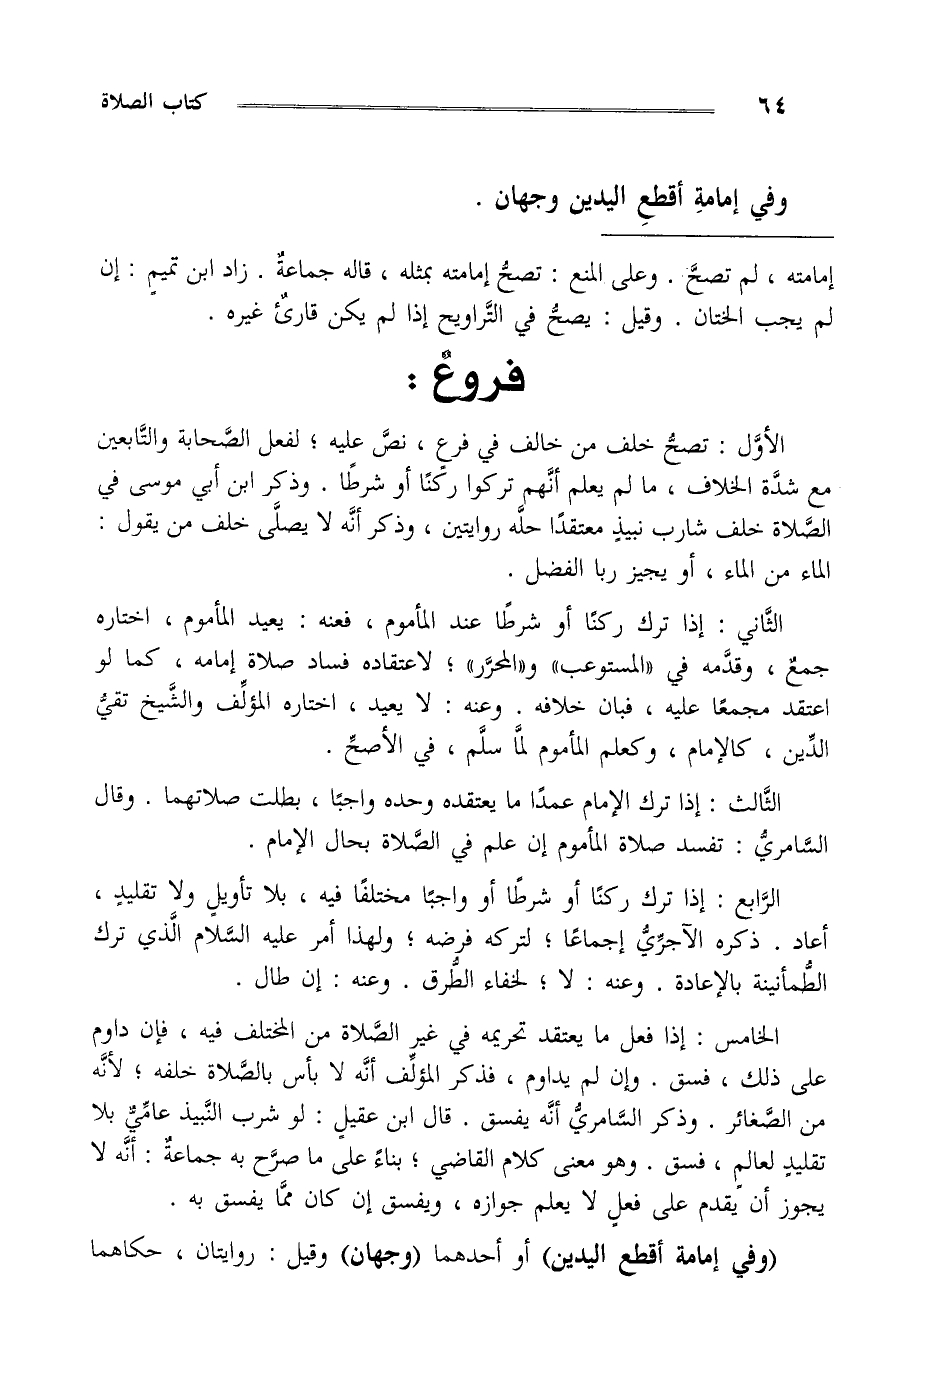 ٦٤ كتاب الصلاة
وفي إمامةِ أقطعِ اليدين وجهان .
إمامته ، لم تصحَّ . وعلى المنع : تصحُّ إمامته بمثله ، قاله جماعةٌ . زاد ابن تميمٍ : إن
لم يجب الختان . وقيل : يصحُّ في التَّراويح إذا لم يكن قارئٌ غيره .
فروعٌ :
الأوَّل : تصحُّ خلف من خالف في فرعٍ ، نصَّ عليه ؛ لفعل الصَّحابة والتَّابعين
مع شدَّة الخلاف ، ما لم يعلم أنَّهم تركوا ركنًا أو شرطًا . وذكر ابن أبي موسى في
الصَّلاة خلف شارب نبيذٍ معتقدًا حلَّه روايتين ، وذكر أنَّه لا يصلَّى خلف من يقول :
الماء من الماء ، أو يجيز ربا الفضل .
الثَّاني : إذا ترك ركنًا أو شرطًا عند المأموم ، فعنه : يعيد المأموم ، اختاره
جمعٌ ، وقدَّمه في «المستوعب» و«المحرَّر» ؛ لاعتقاده فساد صلاة إمامه ، كما لو
اعتقد مجمعًا عليه ، فبان خلافه . وعنه : لا يعيد ، اختاره المؤلِّف والشَّيخ تقيُّ
الدِّين ، كالإمام ، وكعلم المأموم لمَّا سلَّم ، في الأصحِّ .
الثَّالث : إذا ترك الإمام عمدًا ما يعتقده وحده واجبًا ، بطلت صلاتهما . وقال
السَّامريُّ : تفسد صلاة المأموم إن علم في الصَّلاة بحال الإمام .
الرَّابع : إذا ترك ركنًا أو شرطًا أو واجبًا مختلفًا فيه ، بلا تأويلٍ ولا تقليدٍ ،
أعاد . ذكره الآجرِّيُّ إجماعًا ؛ لتركه فرضه ؛ ولهذا أمر عليه السَّلام الَّذي ترك
الطُّمأنينة بالإعادة . وعنه : لا ؛ لخفاء الطُّرق . وعنه : إن طال .
الخامس : إذا فعل ما يعتقد تحريمه في غير الصَّلاة من المختلف فيه ، فإن داوم
على ذلك ، فسق . وإن لم يداوم ، فذكر المؤلِّف أنَّه لا بأس بالصَّلاة خلفه ؛ لأنَّه
من الصَّغائر . وذكر السَّامريُّ أنَّه يفسق . قال ابن عقيلٍ : لو شرب النَّبيذ عامِّيٌّ بلا
تقليدٍ لعالمٍ ، فسق . وهو معنى كلام القاضي ؛ بناءً على ما صرَّح به جماعةٌ : أنَّه لا
يجوز أن يقدم على فعلٍ لا يعلم جوازه ، ويفسق إن كان ممَّا يفسق به .
(وفي إمامة أقطع اليدين) أو أحدهما (وجهان) وقيل : روايتان ، حكاهما